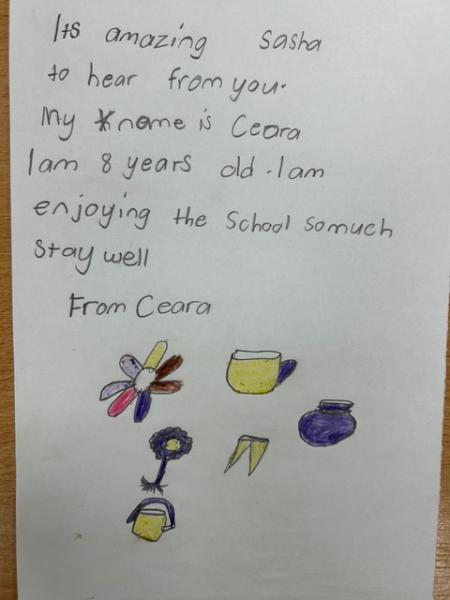 Its amazing Sasha
to hear from you.
My name is Ceara
I am 8 years old. I am
enjoying the School somuch
Stay well
From Ceara